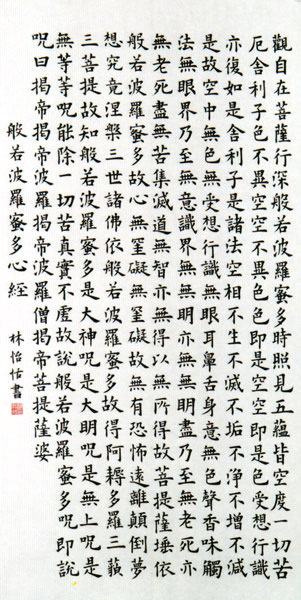 觀自在菩薩行深般若波羅蜜多時照見五蘊皆空度一切苦
厄舍利子色不異空空不異色色即是空空即是色受想行識
亦復如是舍利子是諸法空相不生不滅不垢不淨不增不減
是故空中無色無受想行識無眼耳鼻舌身意無色聲香味觸
法無眼界乃至無意識界無無明亦無無明盡乃至無老死亦
無老死盡無苦集滅道無智亦無得以無所得故菩提薩埵依
般若波羅蜜多故心無罣礙無罣礙故無有恐怖遠離顛倒夢
想究竟涅槃三世諸佛依般若波羅蜜多故得阿耨多羅三藐
三菩提故知般若波羅蜜多是大神咒是大明咒是無上咒是
無等等咒能除一切苦真實不虛故說般若波羅蜜多咒即說
咒曰揭帝揭帝波羅揭帝波羅僧揭帝菩提薩婆
般若波羅蜜多心經
林怡書